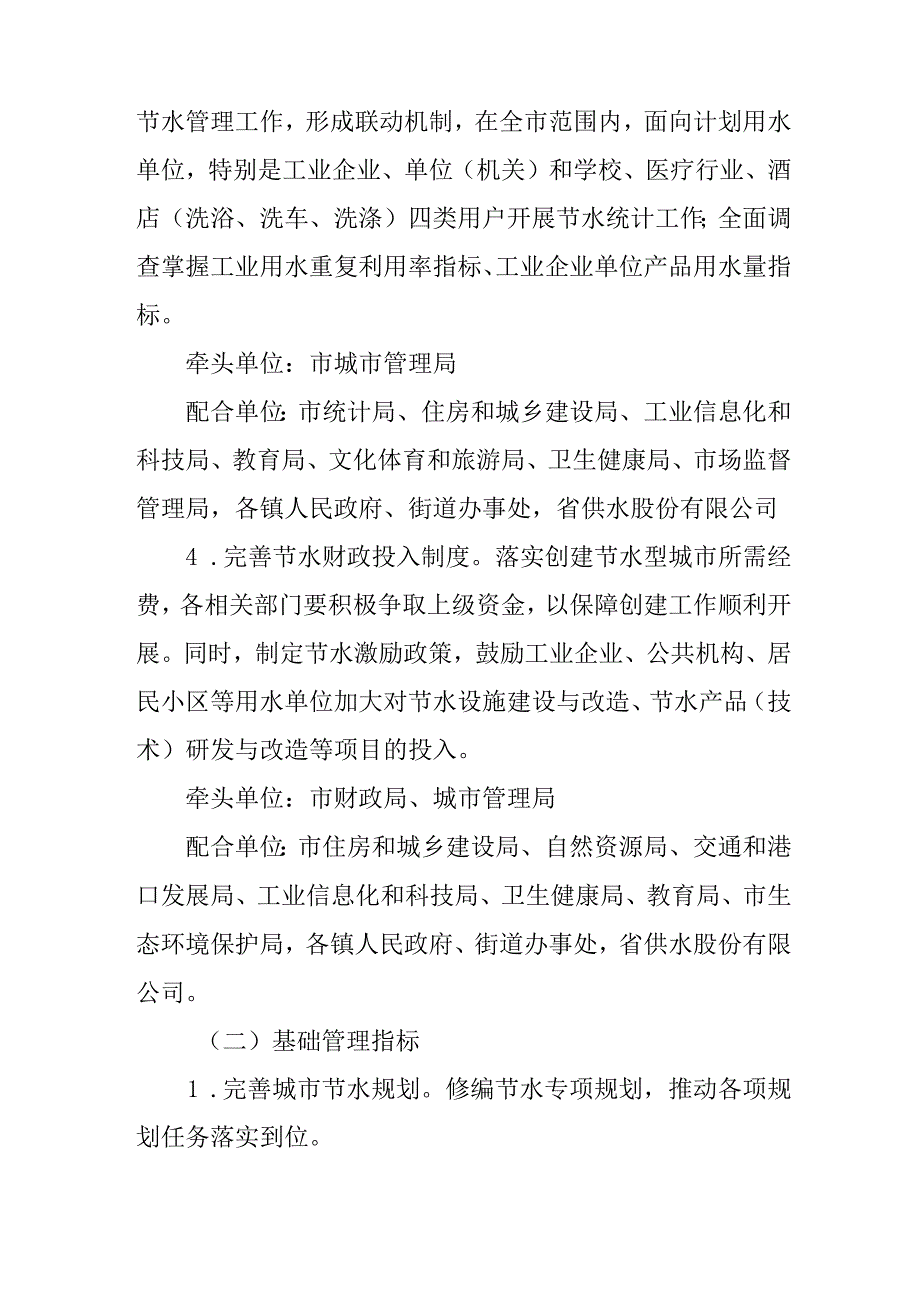 节水管理工作，形成联动机制，在全市范围内，面向计划用水
单位，特别是工业企业、单位（机关）和学校、医疗行业、酒
店（洗浴、洗车、洗涤）四类用户开展节水统计工作；全面调
查掌握工业用水重复利用率指标、工业企业单位产品用水量指
标。
牵头单位：市城市管理局
配合单位：市统计局、住房和城乡建设局、工业信息化和
科技局、教育局、文化体育和旅游局、卫生健康局、市场监督
管理局，各镇人民政府、街道办事处，省供水股份有限公司
4．完善节水财政投入制度。落实创建节水型城市所需经
费，各相关部门要积极争取上级资金，以保障创建工作顺利开
展。同时，制定节水激励政策，鼓励工业企业、公共机构、居
民小区等用水单位加大对节水设施建设与改造、节水产品（技
术）研发与改造等项目的投入。
牵头单位：市财政局、城市管理局
配合单位：市住房和城乡建设局、自然资源局、交通和港
口发展局、工业信息化和科技局、卫生健康局、教育局、市生
态环境保护局，各镇人民政府、街道办事处，省供水股份有限
公司。
（二）基础管理指标
1．完善城市节水规划。修编节水专项规划，推动各项规
划任务落实到位。